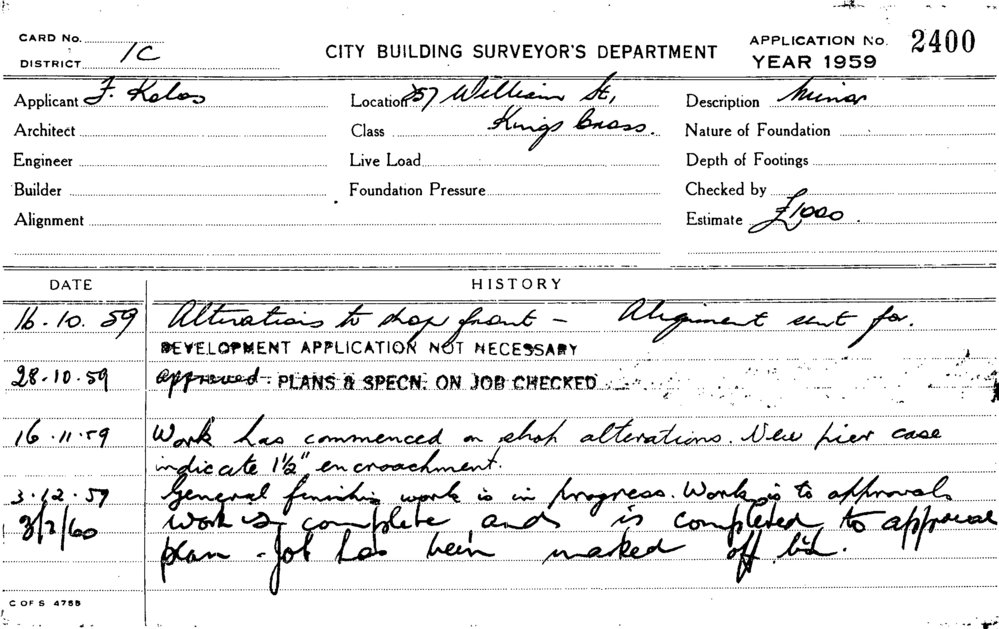 CARD No.
DISTRICT 1C
CITY BUILDING SURVEYOR'S DEPARTMENT
APPLICATION No. 2400
YEAR 1959
Applicant F. Kolos
Location 257 William St,
Description Minor
Architect
Class Kings Cross.
Nature of Foundation
Engineer
Live Load
Depth of Footings
Builder
Foundation Pressure
Checked by
Alignment
Estimate £1000
DATE HISTORY
16.10.59 Alterations to shop front - Alignment sent for.
DEVELOPMENT APPLICATION NOT NECESSARY
28.10.59 approved. PLANS & SPECN. ON JOB CHECKED
16.11.59 Work has commenced on shop alterations. New pier case
indicate 1½" encroachment.
3.12.59 General finishing work is in progress. Work is to approval
3/2/60 work is complete and is completed to approval
plan - Job has been marked off
C OF S 4755